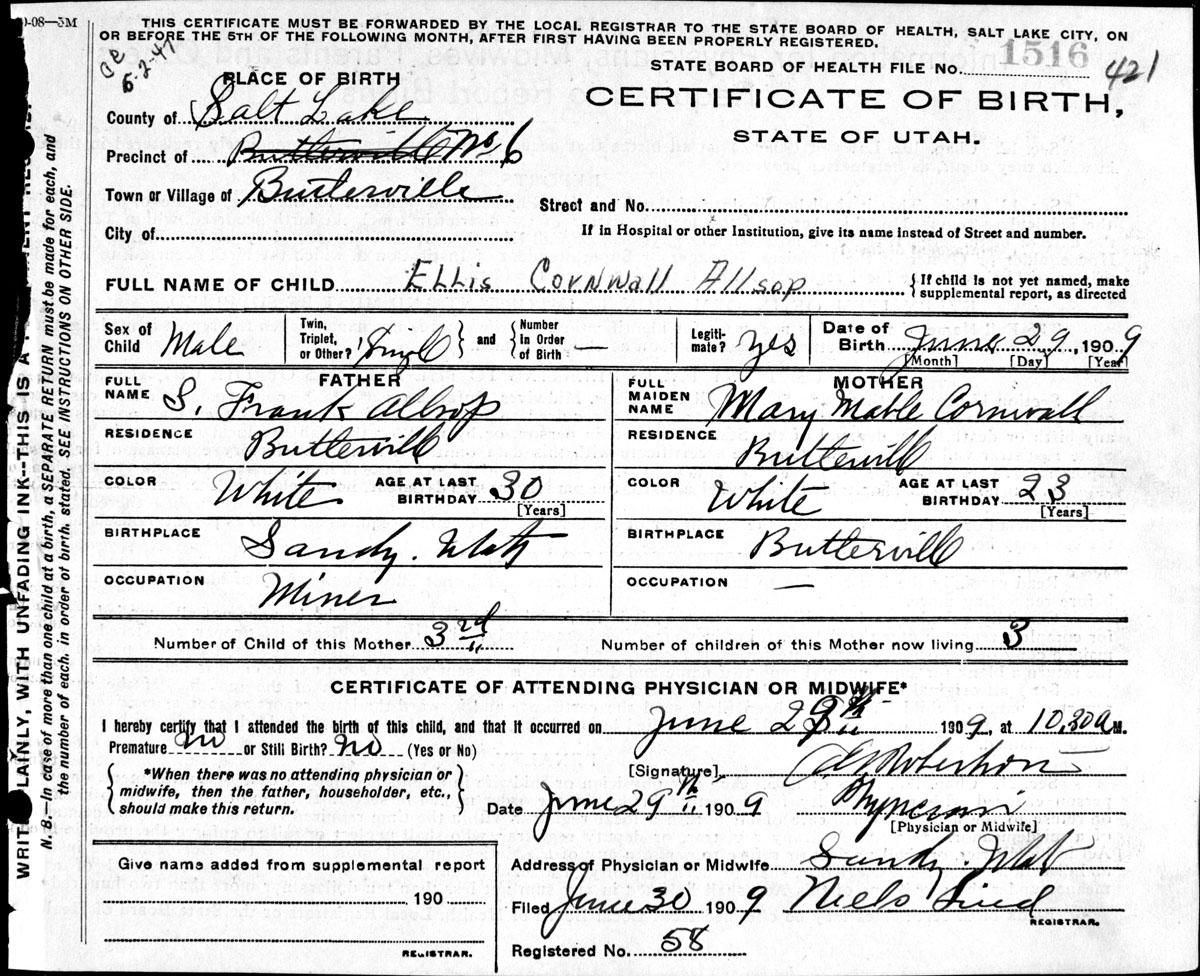 9-08—3M
THIS CERTIFICATE MUST BE FORWARDED BY THE LOCAL REGISTRAR TO THE STATE BOARD OF HEALTH, SALT LAKE CITY, ON
OR BEFORE THE 5TH OF THE FOLLOWING MONTH, AFTER FIRST HAVING BEEN PROPERLY REGISTERED.
6-2-41
STATE BOARD OF HEALTH FILE No. 1516 421
PLACE OF BIRTH
CERTIFICATE OF BIRTH,
STATE OF UTAH.
County of Salt Lake
Precinct of Butlerville No 6
Town or Village of Butlerville
Street and No.
City of
If in Hospital or other Institution, give its name instead of Street and number.
FULL NAME OF CHILD Ellis Cornwall Allsop { If child is not yet named, make supplemental report, as directed
Sex of Child Male Twin, Triplet, or Other? Singl } and { Number In Order of Birth — Legiti-mate? yes Date of Birth June 29, 1909
[Month] [Day] [Year]
FATHER
FULL NAME S. Frank Allsop
RESIDENCE Butlervill
COLOR White AGE AT LAST BIRTHDAY 30
[Years]
BIRTHPLACE Sandy. Utah
OCCUPATION Miner
MOTHER
FULL MAIDEN NAME Mary Mable Cornwall
RESIDENCE Buttervill
COLOR White AGE AT LAST BIRTHDAY 23
[Years]
BIRTHPLACE Butterville
OCCUPATION —
Number of Child of this Mother 3rd Number of children of this Mother now living 3
CERTIFICATE OF ATTENDING PHYSICIAN OR MIDWIFE*
I hereby certify that I attended the birth of this child, and that it occurred on June 29th 1909, at 10,30 a M.
Premature no or Still Birth? no (Yes or No)
{ *When there was no attending physician or midwife, then the father, householder, etc., should make this return. }
[Signature] Robertson
Date June 29th 1909 Physician
[Physician or Midwife]
Give name added from supplemental report
190
REGISTRAR.
Address of Physician or Midwife Sandy. Utah
Filed June 30 1909 Niels Lind
REGISTRAR.
Registered No. 58
WRITE PLAINLY, WITH UNFADING INK—THIS IS A
N. B.—In case of more than one child at a birth, a SEPARATE RETURN must be made for each, and
the number of each, in order of birth, stated. SEE INSTRUCTIONS ON OTHER SIDE.